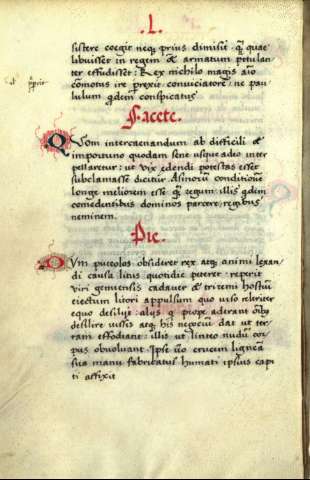 .L.
sistere coegit neq; prius dimisit q̃ quae
libuisset in regem & armatum petulan
ter effudisset: Rex nichilo magis
cõmotus ire prexit conuiciatorẽ ne pau
lulum q̃dem conspicatus
Facete.
QVom intercaenandum ab difficili &
importuno quodam sene usque adeo inter
pellaretur: ut vix edendi potestas esset
subclamasse dicitur Asinorũ conditionẽ
longe meliorem esse q̃ regum: illis q̃dem
comedentibus dominos parcere, regibus
neminem.
Pie.
DVm puteolos obsideret rex atq; animi laxan
di causa litus quotidie peteret: reperit
viri genuensis cadauer & triremi hostiũ
eiectum litori appulsum quo viso celeriter
equo desiluit: alijs q prope aderant oĩbꝫ
desilire iussis atq; his negociũ dat ut ter
ram effodiant: illis ut linteo nudũ cor
pus obuoluant. Ipse ũo crucem ligneã
sua manu fabricatus humati ipsius capi
ti affixit